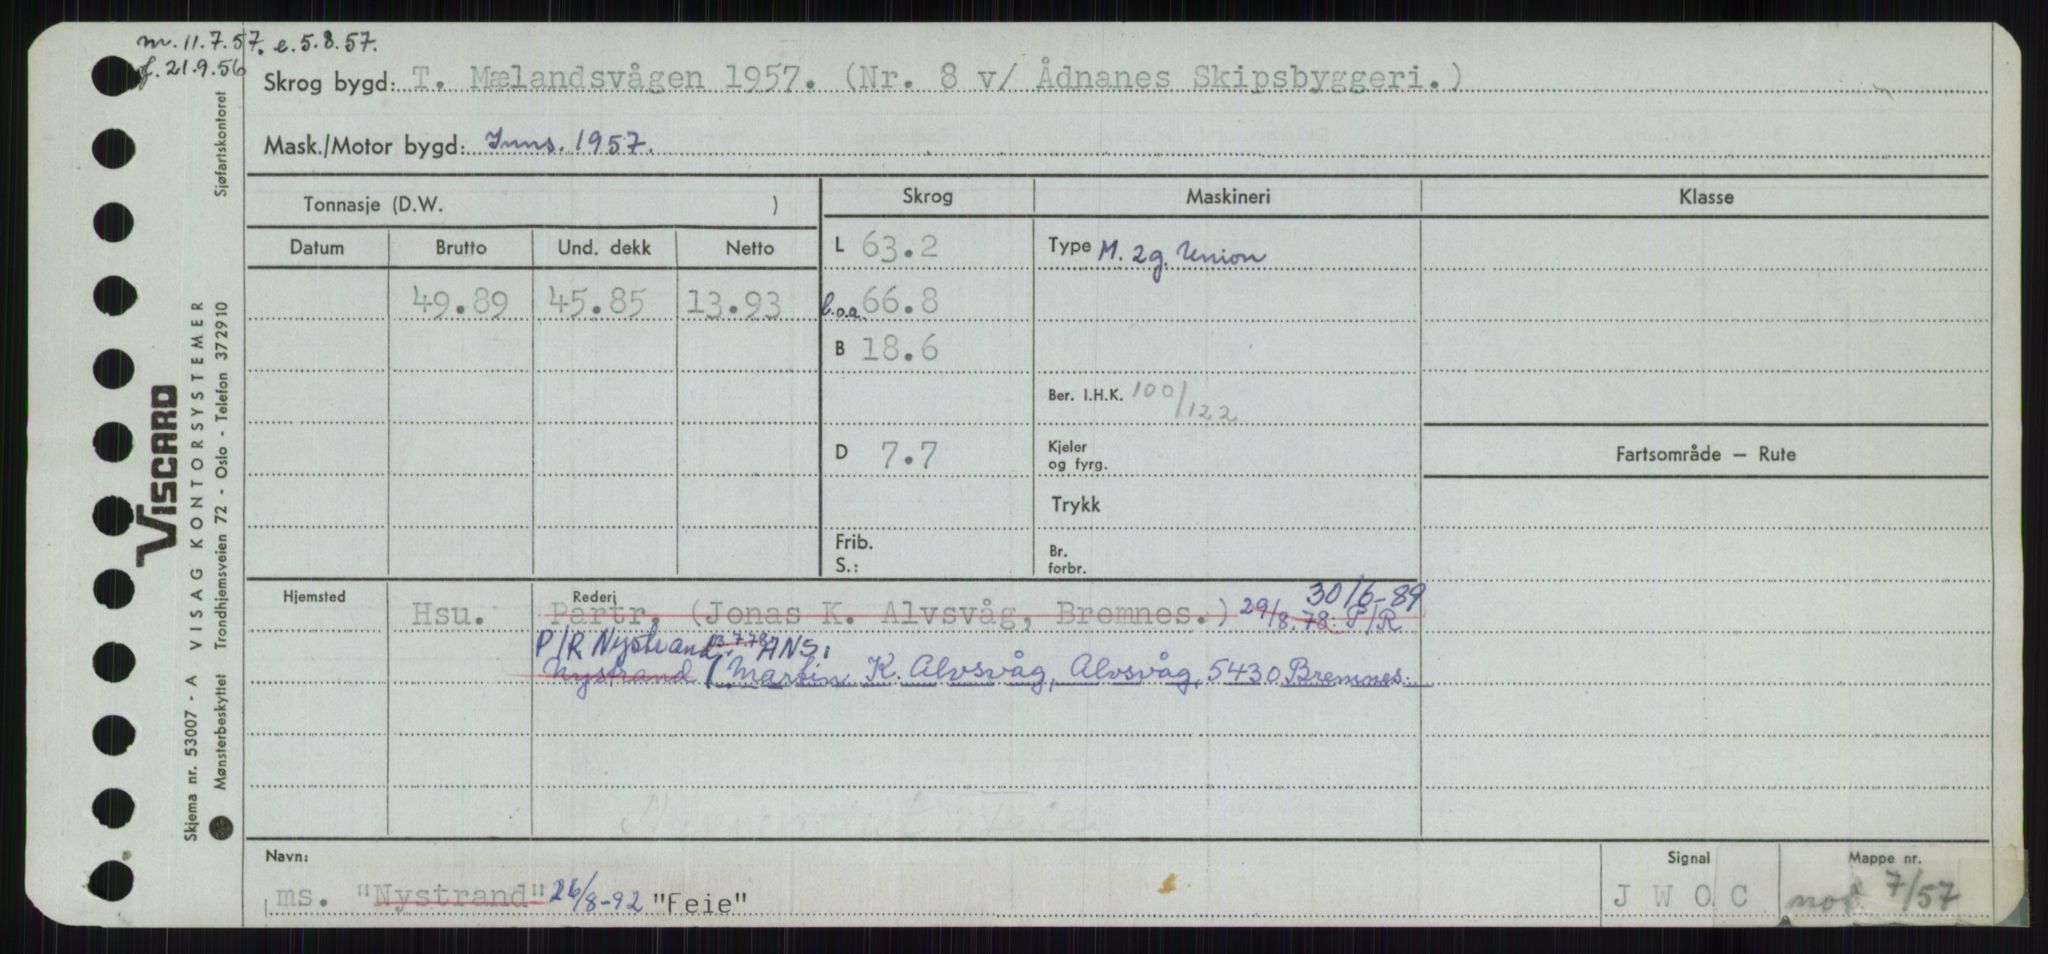 m. 11.7.57. e. 5.8.57.
f. 21.9.56
Skrog bygd: T. Mælandsvågen 1957. (Nr. 8 v/ Ådnanes Skipsbyggeri.)
Mask./Motor bygd: Inns. 1957.
Tonnasje (D.W. )
Skrog
Maskineri
Klasse
Datum Brutto Und. dekk Netto
L 63.2
Type M. 2g. Union
49.89 45.85 13.93
l.o.a. 66.8
B 18.6
Ber. I.H.K. 100/122
D 7.7
Kjeler
og fyrg.
Fartsområde – Rute
Trykk
Frib.
S.:
Br.
forbr.
Hjemsted
Rederi
30/6-89
Hsu. Partr. (Jonas K. Alvsvåg, Bremnes.) 29/8.78: P/R
P/R Nystrand 13.7.78 ANS.
Nystrand (Martin K. Alvsvåg, Alvsvåg, 5430 Bremnes.
Navn:
Signal
Mappe nr.
ms. "Nystrand" 26/8-92 "Feie"
J W O C
not. 7/57
Sjøfartskontoret
VISCARD
VISAG KONTORSYSTEMER
Skjema nr. 53007 - A
Mønsterbeskyttet Trondhjemsveien 72 - Oslo - Telefon 372910